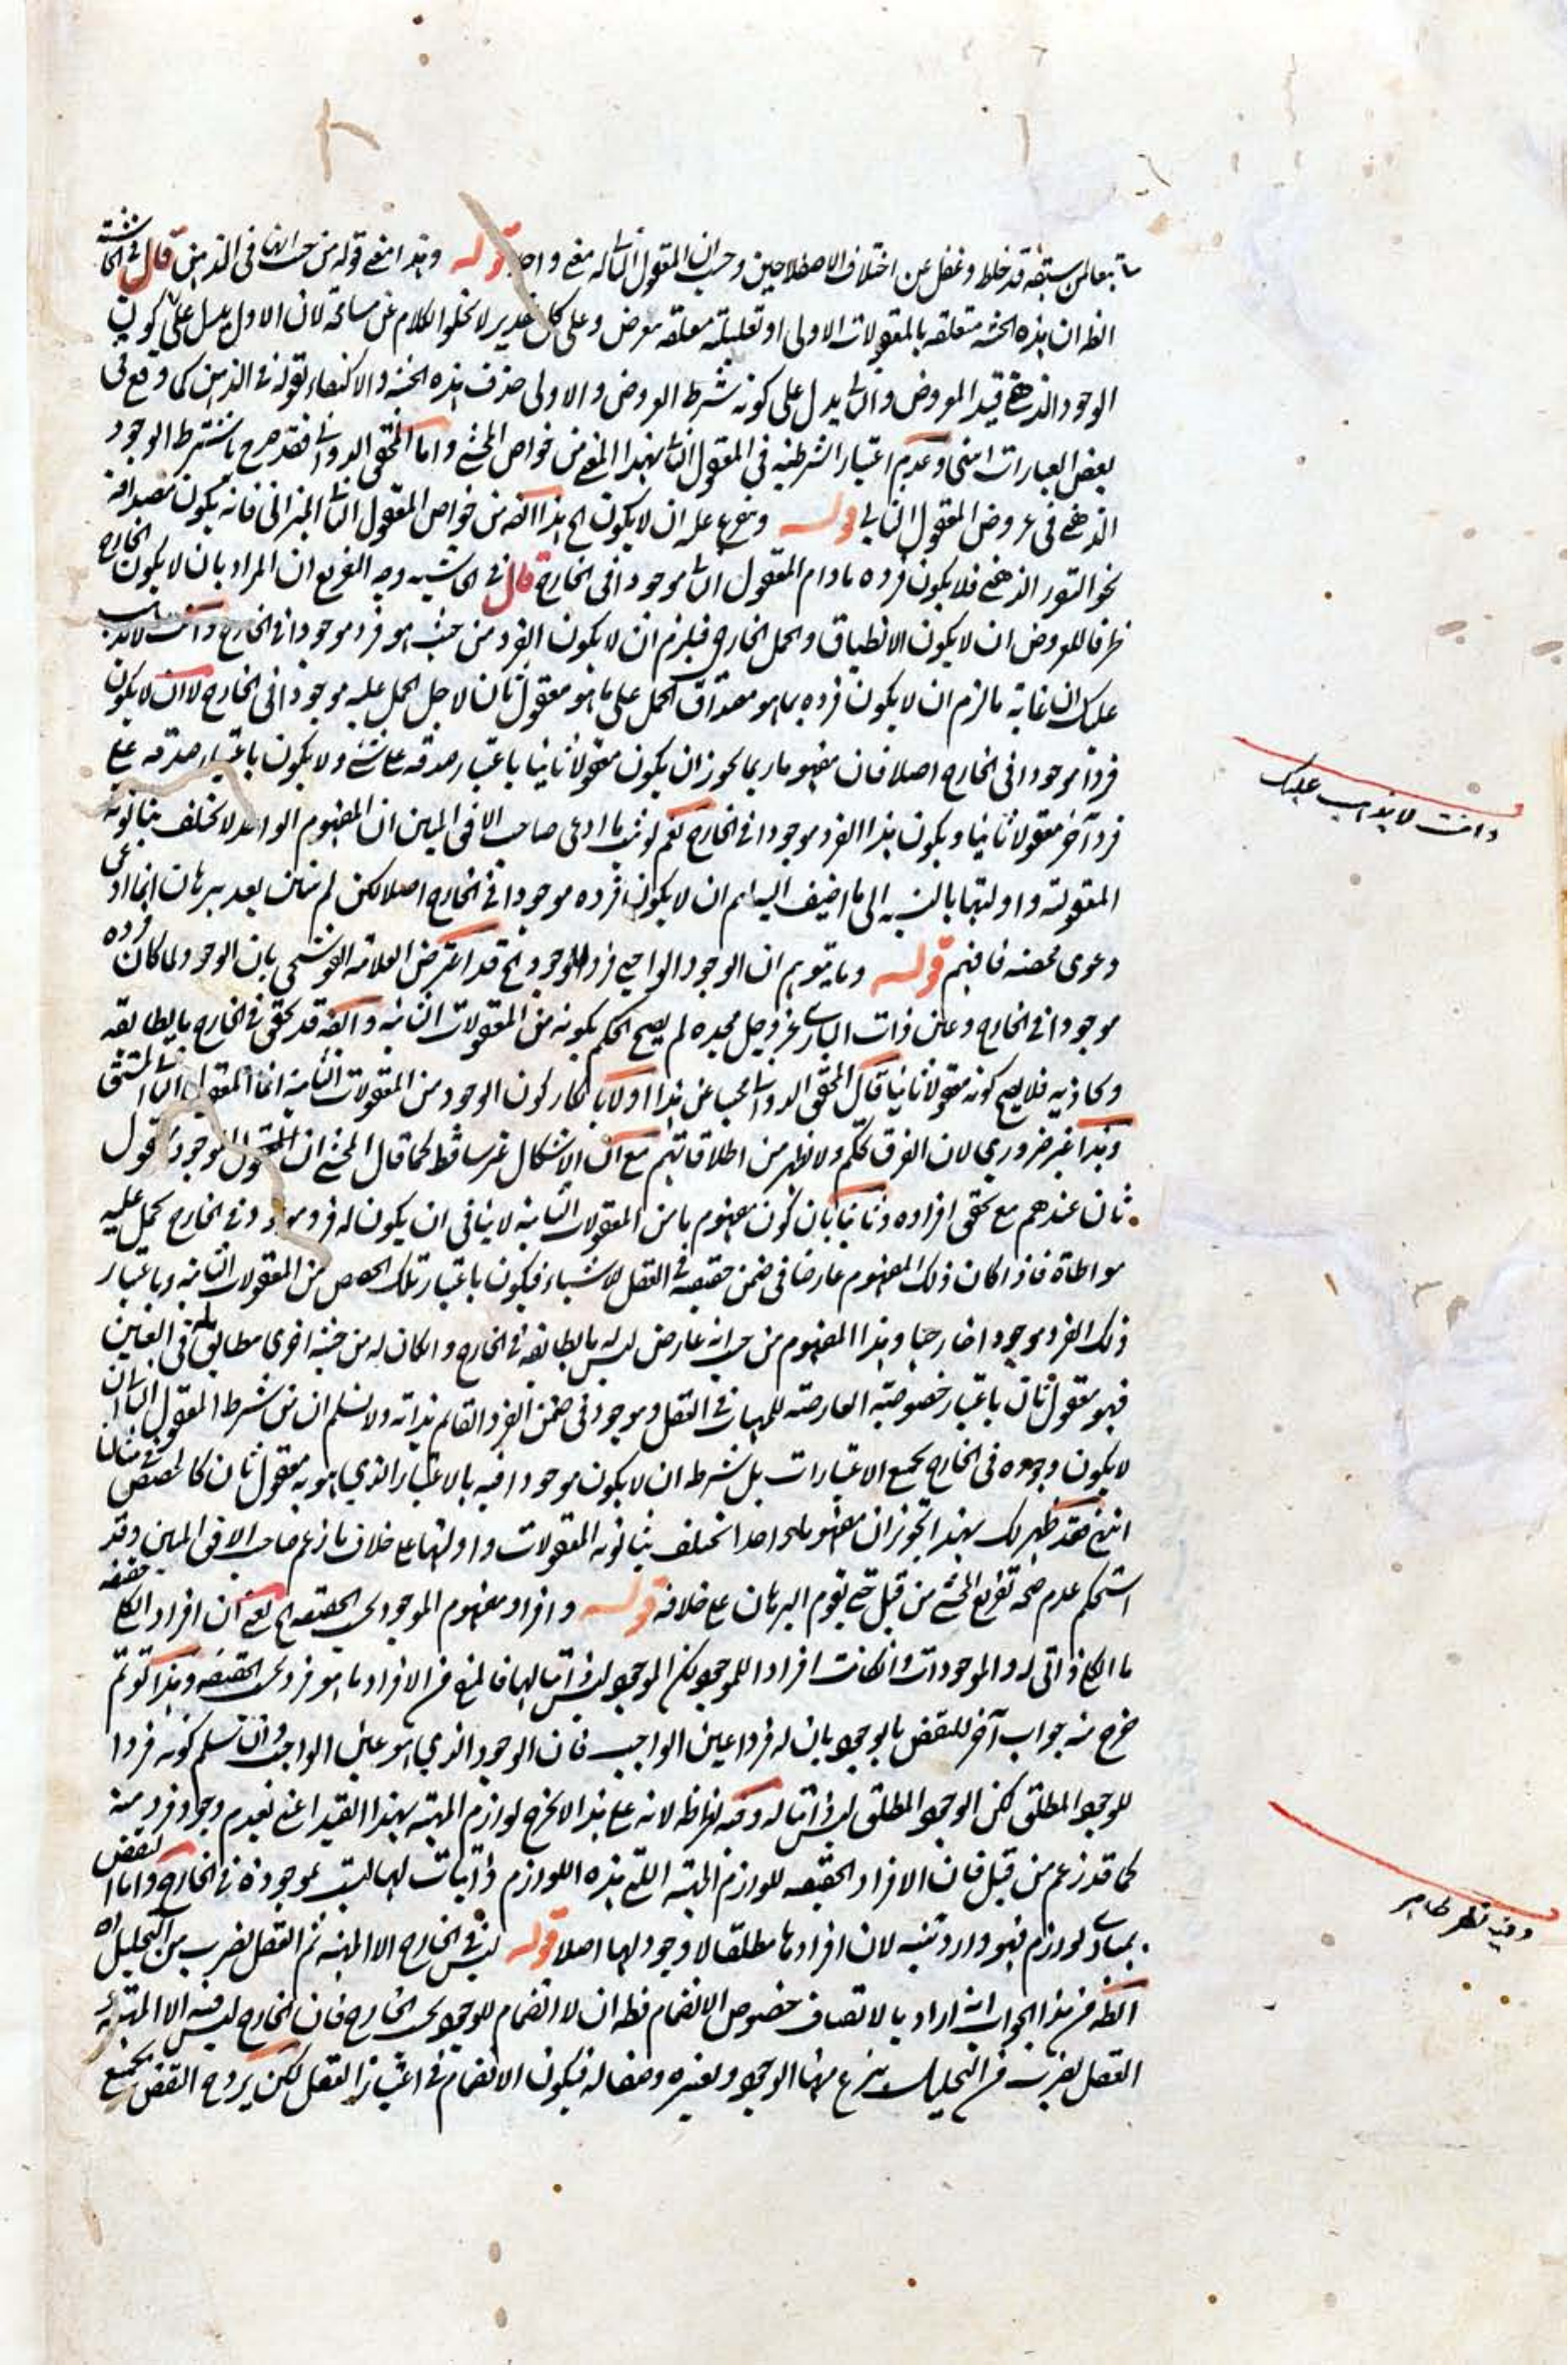 تبعا لمن سبقه قد خلط وغفل عن اختلاف الاصطلاحين وحسب ان المعقول الثاني له معنى واحد قوله وهذا معنى قوله من حيث انها في الذهن قال في الحاشية
الظ ان هذه الحيثية متعلقة بالمعقولات الاولى او تعليلية معلقة بعرض وعلى كل تقدير لا يخلو الكلام عن مسامحة لان الاول يدل على كون
الوجود الذهني قيد المعروض والثاني يدل على كونه شرط العروض والاولى حذف هذه الحيثية والاكتفاء بقوله في الذهن كما وقع في
بعض العبارات انتهى وعدم اعتبار الشرطية في المعقول الثاني بهذا المعنى من خواص المحشي واما المحقق الدواني فقد صرح باشتراط الوجود
الذهني في عروض المعقول الثاني قوله ويتفرع عليه ان لا يكون الخ هذا ايضا من خواص المعقول الثاني الميزاني فانه يكون مصداقه
نحو التقرر الذهني فلا يكون فرده مادام المعقول الثاني موجودا في الخارج قال في الحاشية وجه التفريع ان المراد بان لا يكون الخارج
ظرفا للعروض ان لا يكون الانطباق والحمل الخارجي فيلزم ان لا يكون الفرد من حيث هو فرد موجودا في الخارج وانت لا يذهب
عليك ان غاية ما لزم ان لا يكون فرده بما هو مصداق الحمل على ما هو معقول ثان لاجل الحمل عليه موجودا في الخارج لا ان لا يكون
فردا موجودا في الخارج اصلا فان مفهوما ربما يجوز ان يكون معقولا ثانيا باعتبار صدقه على شئ ولا يكون باعتبار صدقه على
فرد آخر معقولا ثانيا ويكون هذا الفرد موجودا في الخارج نعم لو ثبت ما ادعى صاحب الافق المبين ان المفهوم الواحد لا يختلف بثانوية
المعقولية واوليتها بالنسبة الى ما اضيف اليه لزم ان لا يكون فرده موجودا في الخارج اصلا لكن لم يتبين بعد ببرهان انما ادعى
دعوى محضة فافهم قوله وما يتوهم ان الوجود الواجبي فرد للوجود الخ قد اعترض العلامة القوشجي بان الوجود لما كان فرده
موجودا في الخارج وعين ذات الباري عز وجل مجده لم يصح الحكم بكونه من المعقولات الثانية وايضا قد تحقق في الخارج ما يطابقه
ويحاذيه فلا يصح كونه معقولا ثانيا قال المحقق الدواني مجيبا عن هذا اولا بانكار كون الوجود من المعقولات الثانية انما المعقول الثاني المشتق
وهذا غير ضروري لان الفرق تحكم ولا يظهر من اطلاقاتهم مع ان الاشكال غير ساقط كما قال المحشي ان المعقول الموجود معقول
ثان عندهم مع تحقق افراده وثانيا بان كون مفهوم ما من المعقولات الثانية لا ينافي ان يكون له فرد موجود في الخارج يحمل عليه
مواطاة فاذا كان ذلك المفهوم عارضا في ضمن حقيقة في العقل للاشياء فيكون باعتبار تلك الحصص من المعقولات الثانية وباعتبار
ذلك الفرد موجودا خارجيا وهذا المفهوم من حيث انه عارض ليس له ما يطابقه في الخارج وان كان له من حيثية اخرى مطابق في العين
فهو معقول ثان باعتبار خصوصيته العارضة للمهيات في العقل وموجود في ضمن الفرد القائم بذاته ولا نسلم ان من شرط المعقول الثاني ان
لا يكون وجوده في الخارج بجميع الاعتبارات بل شرطه ان لا يكون موجودا فيه بالاعتبار الذي هو به معقول ثان كالحصص في مثالنا
انتهى فقد ظهر لك بهذا تجويز ان مفهوما واحدا تختلف بثانوية المعقولات واوليتها على خلاف ما زعم صاحب الافق المبين وقد
استحكم عدم صحة تفريع المحشي من قبل حتى يقوم البرهان على خلافه قوله وافراد مفهوم الموجود بحسب الحقيقة الخ يعني ان افراد الكلي حقيقة
ما الكلي ذاتي له والموجودات وان كانت افرادا للموجود لكن الموجود ليس ذاتيا لها فالمنع من الافراد ما هو فرد بحسب الحقيقة وهذا لو تم
خرج منه جواب آخر للنقض بالوجود بان له فردا عين الواجب فان الوجود الذي هو عين الواجب وان سلم كونه فردا
للوجود المطلق لكن الوجود المطلق ليس ذاتيا له وفيه نظر ظ لانه على هذا لا يخرج لوازم المهية بهذا القيد اعني بعدم وجود فرد منه
كما قد زعم من قبل فان الافراد الحقيقية للوازم المهية اللتي هذه اللوازم ذاتيات لها ليست بموجودة في الخارج واما النقض
بمبادي لوازم فهو وارد بتة لان افرادها مطلقا لا وجود لها اصلا قوله ليس في الخارج الا المهية ثم العقل بضرب من التحليل اه
الظ من هذا الجواب انه اراد بالاتصاف خصوص الانضمام فظ ان لا انضمام للوجود بحسب الخارج فان الخارج ليس فيه الا المهية ثم
العقل بضرب من التحليل ينزع منها الوجود ويعتبره وصفا له فيكون الانضمام في اعتبار العقل لكن يرد ح النقض بجميع
وانت لا يذهب عليك
وفيه نظر ظاهر